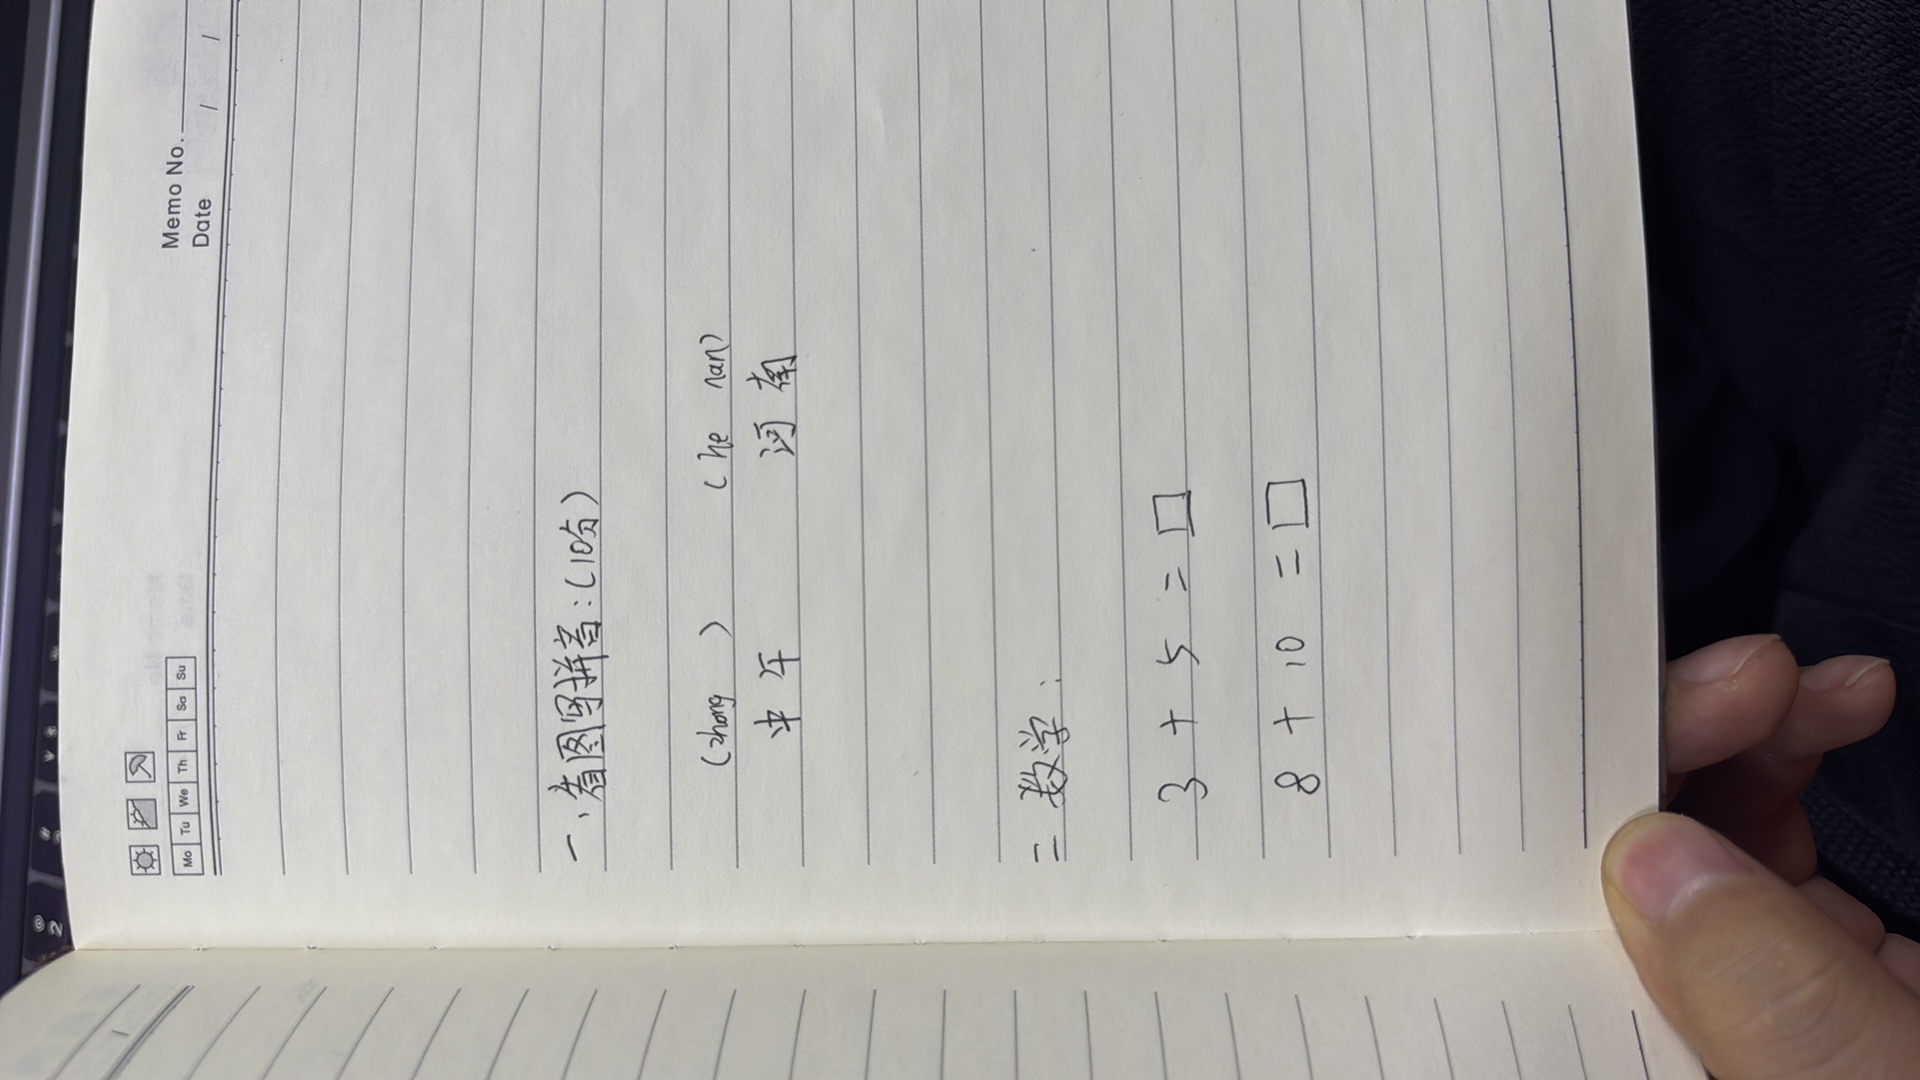 Memo No.
Date / /
Mo Tu We Th Fr Sa Su
一、看图写拼音:(10分)
(zhong ) (he nan)
中午 河南
二 数学:
3 + 5 = □
8 + 10 = □
2